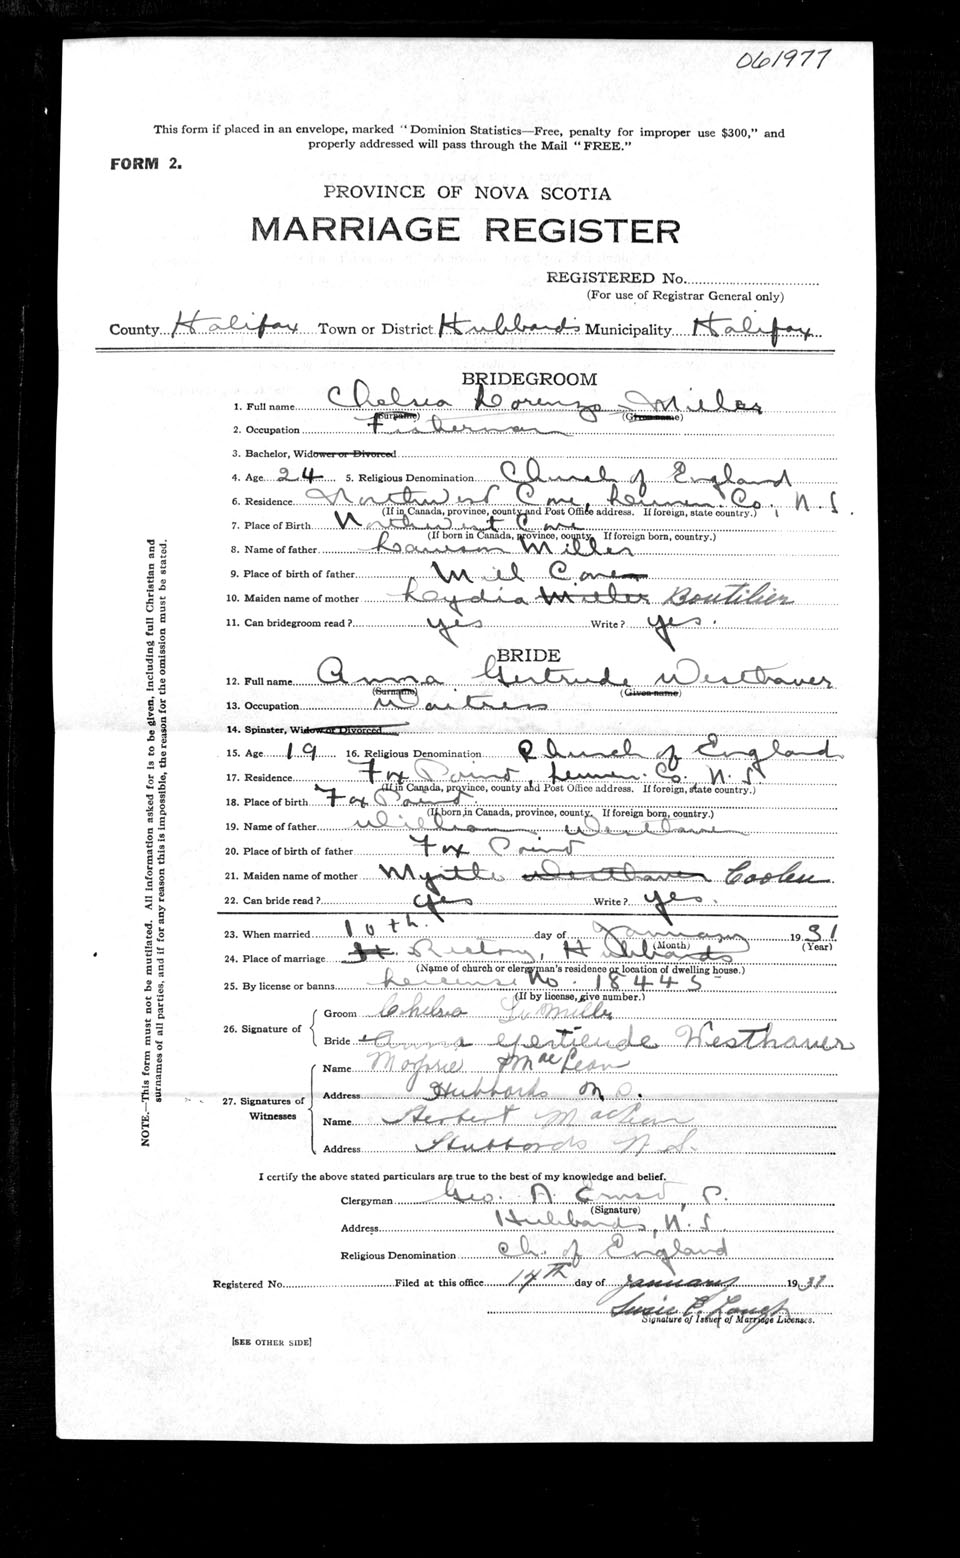 061977
This form if placed in an envelope, marked "Dominion Statistics—Free, penalty for improper use $300," and
properly addressed will pass through the Mail "FREE."
FORM 2.
PROVINCE OF NOVA SCOTIA
MARRIAGE REGISTER
REGISTERED No.
(For use of Registrar General only)
County Halifax Town or District Hubbards Municipality Halifax
BRIDEGROOM
1. Full name Chelsea Lorenzo Miller
(Surname) (Given name)
2. Occupation Fisherman
3. Bachelor, Widower or Divorced
4. Age 24 5. Religious Denomination Church of England
6. Residence Northwest Cove, Lunen. Co., N.S.
(If in Canada, province, county and Post Office address. If foreign, state country.)
7. Place of Birth Northwest Cove
(If born in Canada, province, county. If foreign born, country.)
8. Name of father Lawson Miller
9. Place of birth of father Mill Cove
10. Maiden name of mother Lydia Miller Boutilier
11. Can bridegroom read? yes Write? yes.
BRIDE
12. Full name Anna Gertrude Westhaver
(Surname) (Given name)
13. Occupation Waitress
14. Spinster, Widow or Divorced
15. Age 19 16. Religious Denomination Church of England
17. Residence Fox Point, Lunen. Co. N.S.
(If in Canada, province, county and Post Office address. If foreign, state country.)
18. Place of birth Fox Point
(If born in Canada, province, county. If foreign born, country.)
19. Name of father William Westhaver
20. Place of birth of father Fox Point
21. Maiden name of mother Myrtle Westhaver Coolen
22. Can bride read? yes Write? yes.
23. When married 10th. day of January 1931
(Month) (Year)
24. Place of marriage St. Rectory, Hubbards
(Name of church or clergyman's residence or location of dwelling house.)
25. By license or banns License No. 18445
(If by license, give number.)
26. Signature of Groom Chelsea L. Miller
Bride Anna Gertrude Westhaver
27. Signatures of Witnesses Name MacLean
Address Hubbards N.S.
Name Herbert MacLean
Address Hubbards N.S.
I certify the above stated particulars are true to the best of my knowledge and belief.
Clergyman Geo. A. Ernst, P.
(Signature)
Address Hubbards, N.S.
Religious Denomination Ch. of England
Registered No. Filed at this office 14th day of January 1931
Susie E.
Signature of Issuer of Marriage Licenses.
[SEE OTHER SIDE]
NOTE.—This form must not be mutilated. All information asked for is to be given, including full Christian and
surnames of all parties, and if for any reason this is impossible, the reason for the omission must be stated.